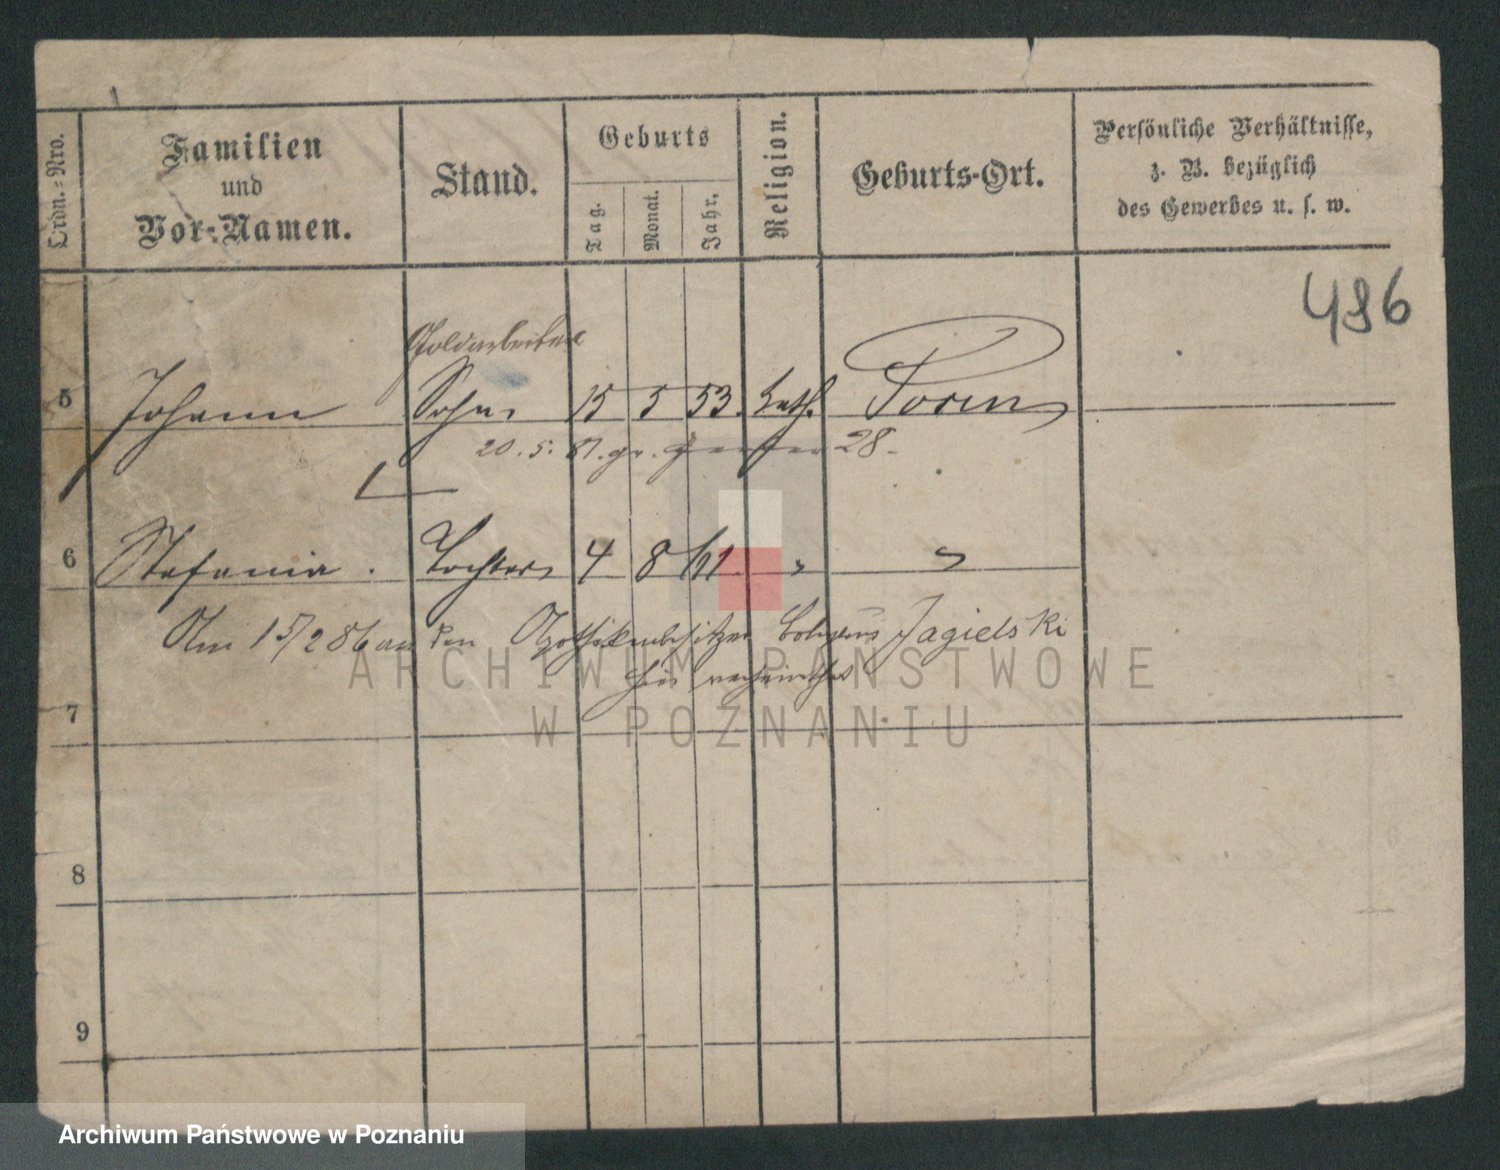 Ordn.-Nro.
Familien
und
Vor-Namen.
Stand.
Geburts
Tag.
Monat.
Jahr.
Religion.
Geburts-Ort.
Persönliche Verhältnisse,
z. B. bezüglich
des Gewerbes u. s. w.
486
Goldarbeiter
5 Johann Sohn 15 5 53. kath. Posen
20. 5. 81. gr. 28.
6 Stefania. Tochter 4 8 61 " "
Am 15/2 86 an den Apothekenbesitzer Jagielski
hier verheirathet
7
8
9
ARCHIWUM PAŃSTWOWE
W POZNANIU
Archiwum Państwowe w Poznaniu